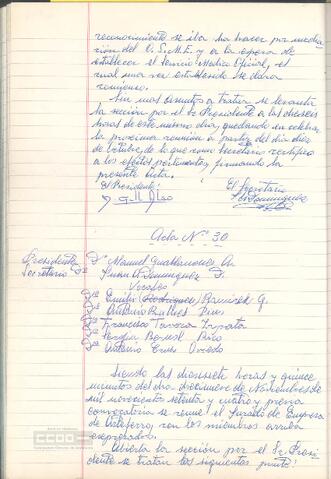 reconocimiento se iba ha hacer por media-
ción del O.S.M.E. y a la espera de
establecer el Servicio Médico Oficial, el
cual una vez establecido se daría
comienzo.
Sin mas asuntos a tratar se levanta
la sección por el Sr Presidente a las dieciseis
horas de este mismo día, quedando en celebrar
la proxima reunión a partir del día diez
de Octubre, de lo que como Secretario certifico
a los efectos pertinentes, firmando la
presente Acta.
El Presidente: El Secretario
Acta Nº 30
Presidente D. Manuel
Secretario Dª Juana Dominguez F.
Vocales
D. Emilio (Rodriguez) Ramirez G.
D. Antonio
D. Francisco Zapata
D. Bernal Rico
D. Antonio Oviedo
Siendo las diecisiete horas y quince
minutos del día diecinueve de Noviembre de
mil novecientos setenta y cuatro y previa
convocatoria se reune el Jurado de Empresa
de con los miembros arriba
expresados.
Abierta la sección por el Sr. Presi-
dente se tratan los siguientes puntos:
CCOO